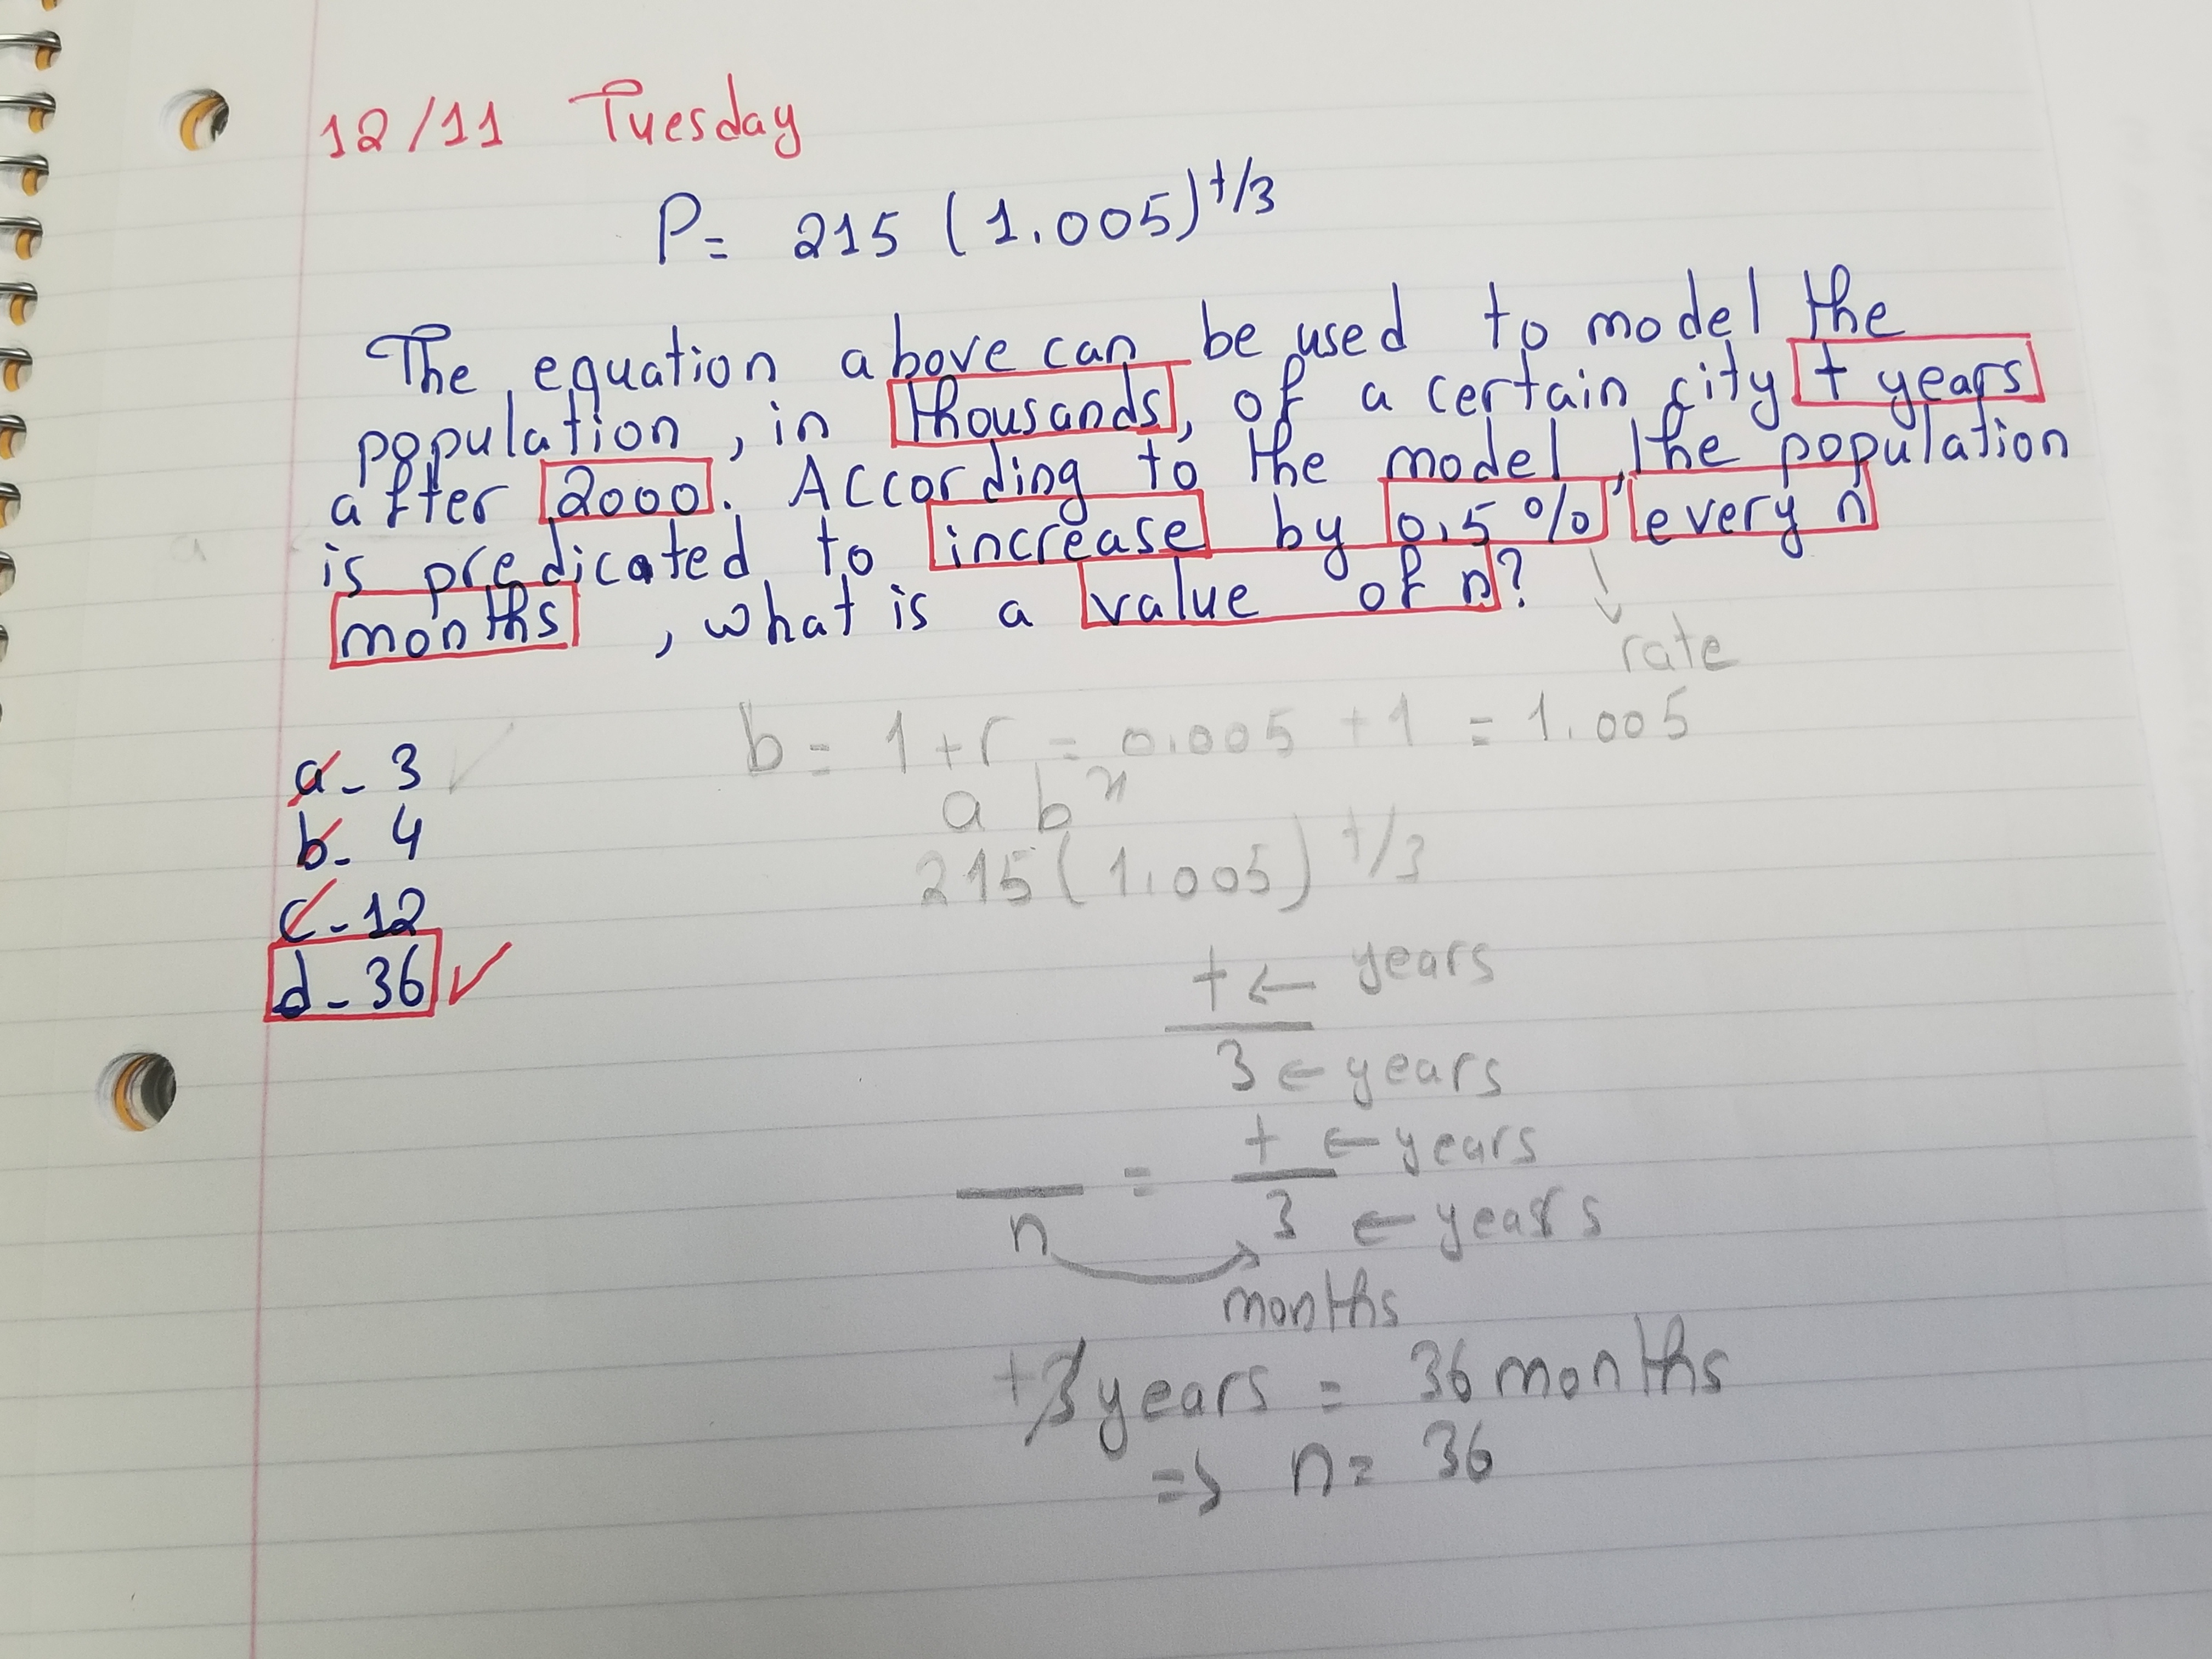 12/11 Tuesday
P= 215 (1.005)^t/3
The equation above can be used to model the
population, in thousands, of a certain city t years
after 2000. According to the model, the population
is predicated to increase by 0.5% every n
months, what is a value of n?
rate
b = 1+r = 0.005 + 1 = 1.005
a - 3 ✓
a b^x
b - 4
215(1.005)^t/3
c - 12
d - 36 ✓
t ← years
3 ← years
t ← years
=
n 3 ← years
months
3 years = 36 months
=> n = 36